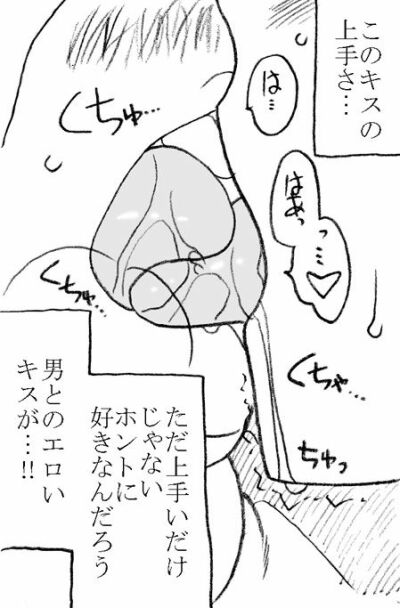 このキスの
上手さ…
は…
くちゅ…
はあっ
っ…
♡
くちゅ…
くちゃ…
ちゅっ
ただ上手いだけ
じゃない
ホントに
好きなんだろう
男とのエロい
キスが…!!